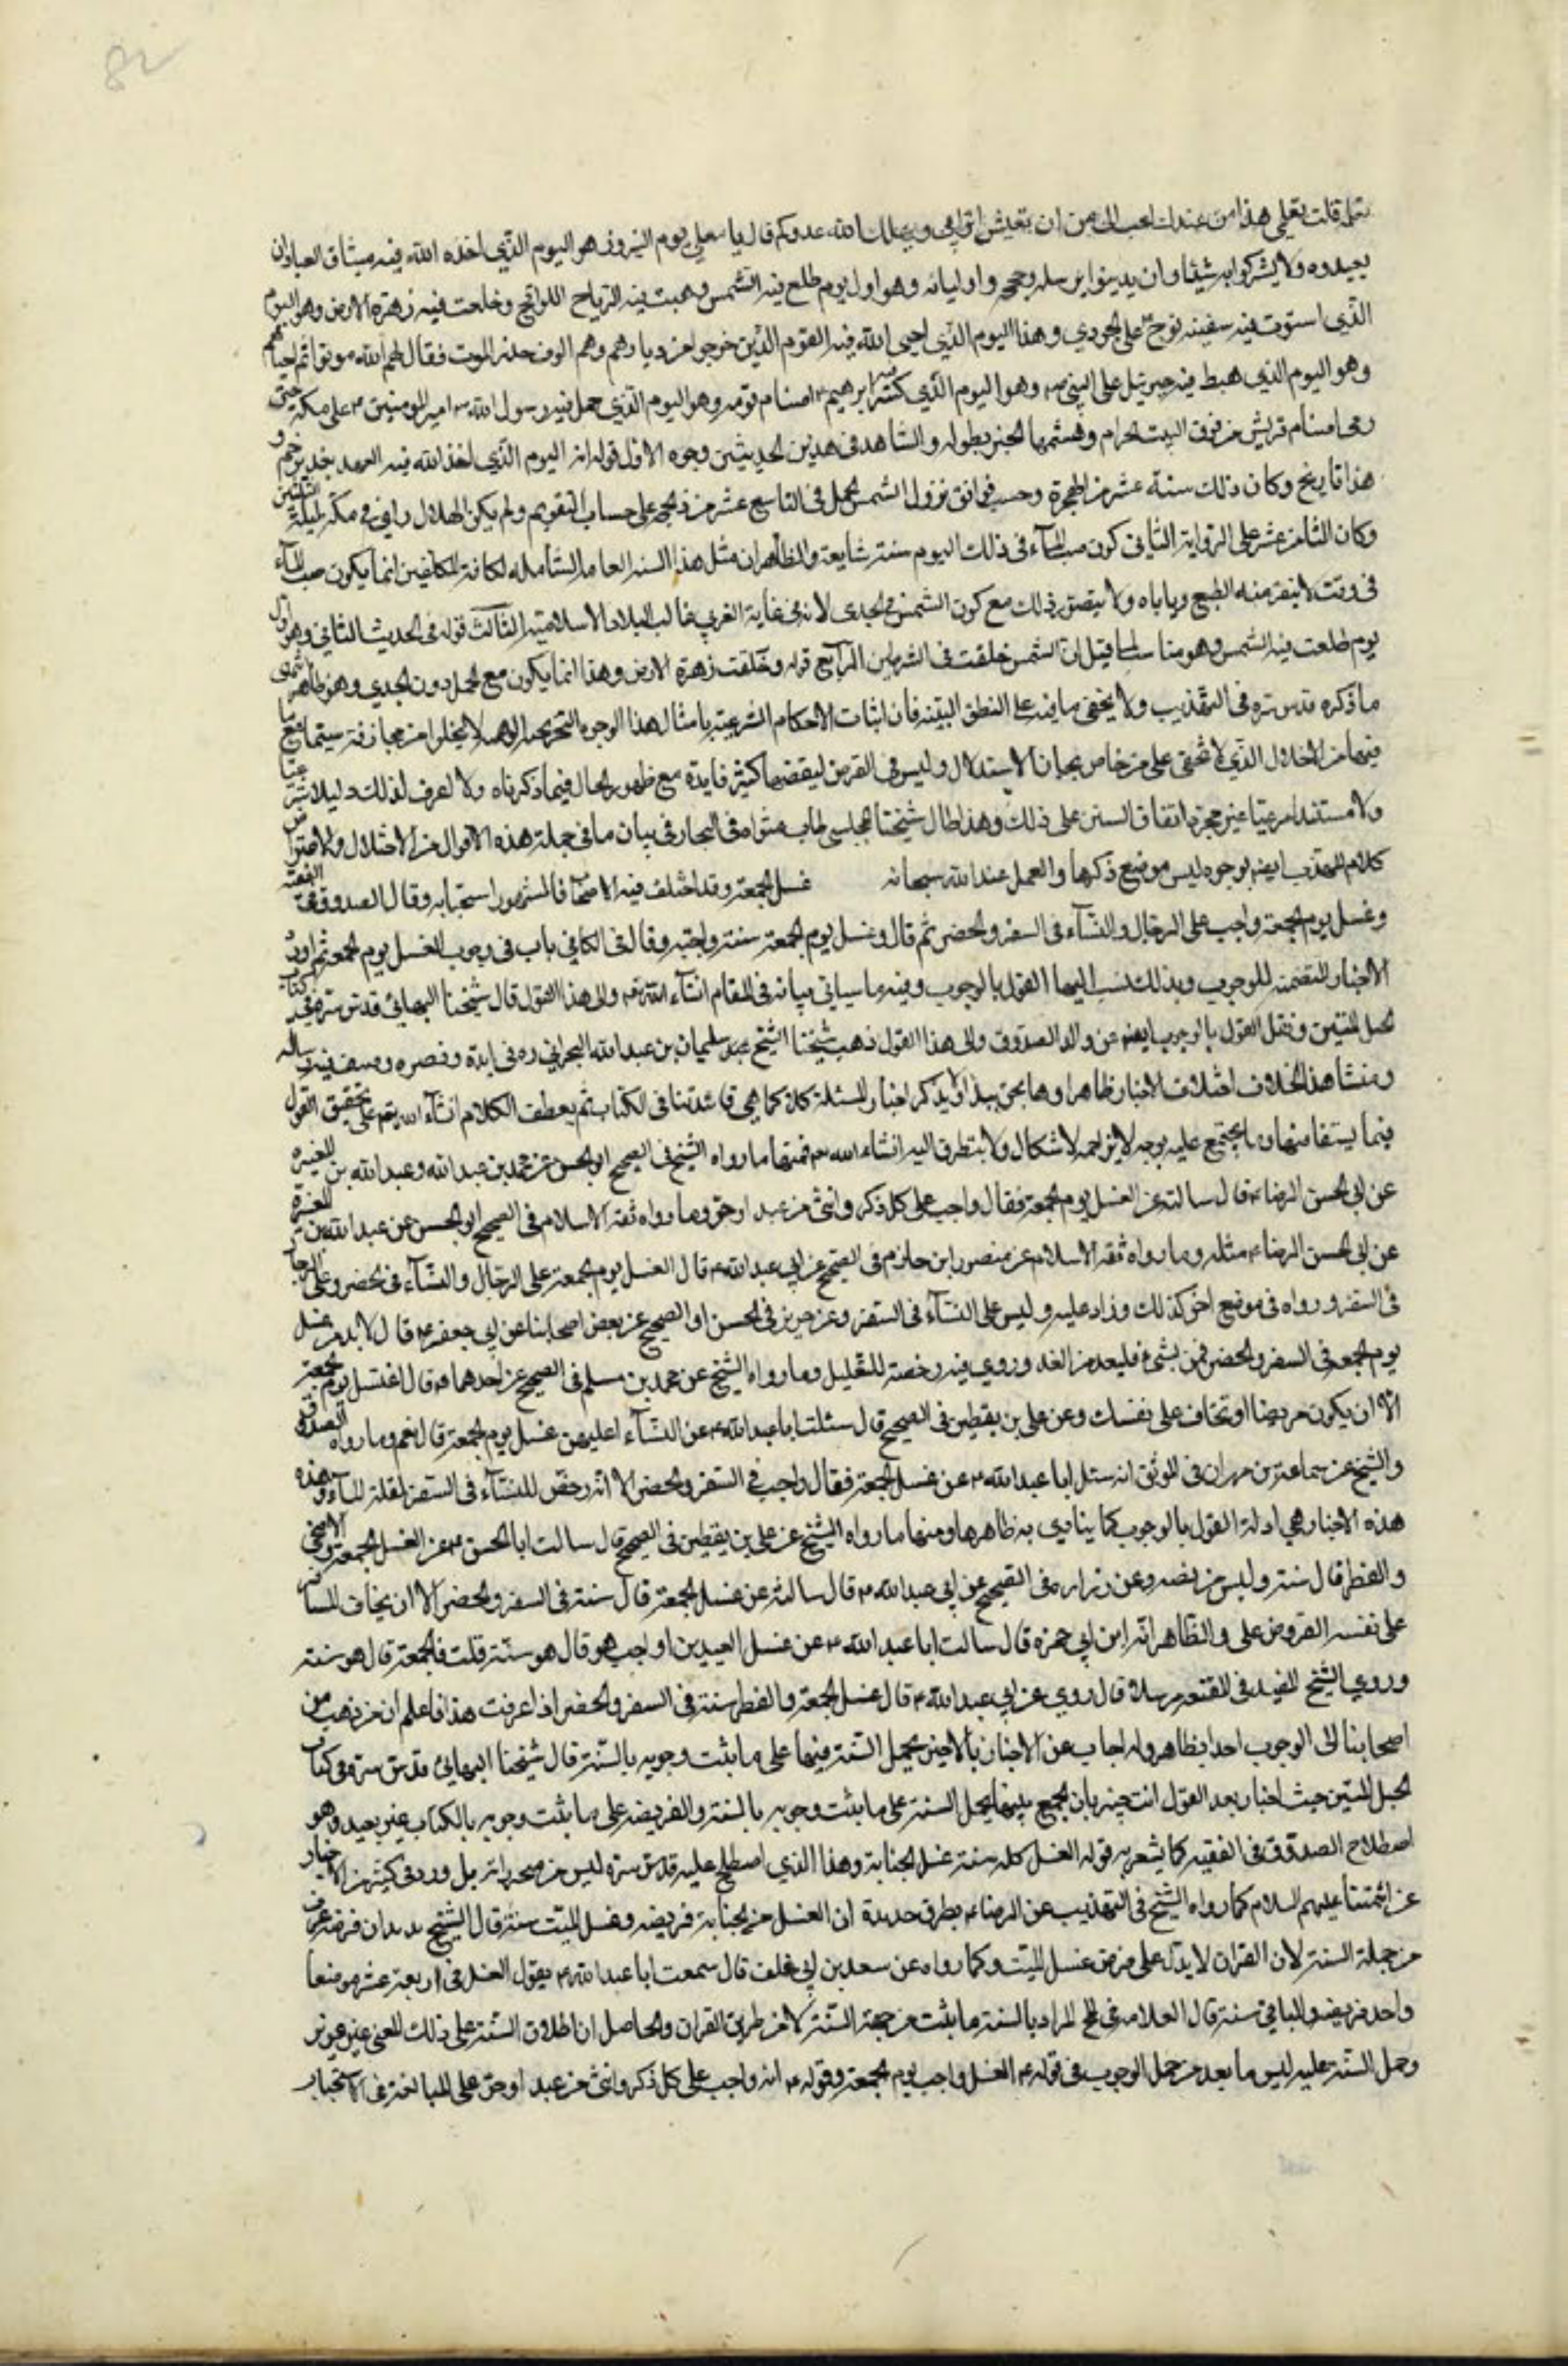 82
بتعلمه قلت تعلمي هذا من عندك احب الى من ان تعيش اقاربي ويهلك الله عدوكم قال يا معلى يوم النيروز هو اليوم الذي اخذ الله فيه ميثاق العباد ان
يعبدوه ولا يشركوا به شيئا وان يدينوا برسله وحججه واوليائه وهو اول يوم طلع فيه الشمس وهبت فيه الرياح اللواقح وخلعت فيه زهرة الارض وهو اليوم
الذي استوت فيه سفينة نوح على الجودي وهذا اليوم الذي احيى الله فيه القوم الذين خرجوا من ديارهم وهم الوف حذر الموت فقال لهم الله موتوا ثم احياهم
وهو اليوم الذي هبط فيه جبرئيل على النبي ص وهو اليوم الذي كسر فيه ابرهيم ع اصنام قومه وهو اليوم الذي حمل فيه رسول الله ص امير المؤمنين ع على منكبه حتى
رمى اصنام قريش من فوق البيت الحرام وهشمها الخبر بطوله والشاهد في هذين الحديثين وجوه الاول قوله انه اليوم الذي اخذ الله فيه العهد بغدير خم و
هذا تاريخ وكان ذلك سنة عشر من الهجرة وحسب فوافق نزول الشمس الحمل في التاسع عشر من ذي الحجة على حساب التقويم ولم يكن الهلال راى في مكة ليلة الثلثين
وكان الثامن عشر على الرؤاية الثاني كون صب الماء في ذلك اليوم سنة شايعة والظاهر ان مثل هذا السنة العامة الشاملة لكافة المكلفين انما يكون صب الماء
في وقت لا ينفر منه الطبع وياباه ولا يتصور ذلك مع كون الشمس في الجدى لانه في غاية القر في غالب البلاد الاسلامية الثالث قوله في الحديث الثاني وهو اول
يوم طلعت فيه الشمس وهو مناسب لما قيل ان الشمس خلقت في الشرطين الرابع قوله وخلقت زهرة الارض وهذا انما يكون مع الحمل دون الجدي وهو ظاهر انتهى
ما ذكره قدس سره في المهذب ولا يخفى ما فيه على الفطن النبيه فان اثبات الاحكام الشرعية بامثال هذا الوجوه التخريجية الوهمية لا يخلو من مجازفة سيما مع ما
فيها من الاختلال الذي لا يخفى على من خاض بحار الاستدلال وليس في القرض لنقضها كثير فايدة مع ظهور الحال فيما ذكرناه ولا اعرف لذلك دليلا شرعيا
ولا مستندا مرعيا غير مجرد اتفاق السنن على ذلك وهذا طال شيخنا المجلسي طاب مثواه في البحار في بيان ما في جملة هذه الاقوال من الاختلال والاعتراض
كلام المهذب ايضا بوجوه ليس موضع ذكرها والعمل عند الله سبحانه غسل الجمعة وقد اختلف فيه الاصحاب فالمشهور استحبابه وقال الصدوق في الفقيه
وغسل يوم الجمعة واجب على الرجال والنساء في السفر والحضر ثم قال وغسل يوم الجمعة سنة واجبة وقال في الكافي باب في وجوب الغسل يوم الجمعة ثم اورد
الاخبار المتضمنة للوجوب وبذلك نسب اليهما القول بالوجوب وفيه ما سياتي بيانه في المقام انشاء الله تع والى هذا القول قال شيخنا البهائي قدس سره في كتاب
الحبل المتين ونقل القول بالوجوب ايضا عن والد الصدوق والى هذا القول ذهب شيخنا الشيخ سليمان بن عبد الله البحراني ره في ونصره وصنف فيه رسالة
ومنشا هذا الخلاف اختلاف الاخبار ظاهرا وها نحن نبدا اولا بذكر اخبار المسئلة كلا كما هي قاعدتنا في الكتاب ثم نعطف الكلام انشاء الله تع على تحقيق القول
فيما يستفاد منها وما يجتمع عليه بوجه لا يزاحمه الاشكال ولا يتطرق اليه انشاء الله تع فمنها ما رواه الشيخ في الصحيح او الحسن عن محمد بن عبد الله وعبد الله بن المغيرة
عن ابي الحسن الرضا ع قال سالته عن الغسل يوم الجمعة فقال واجب على كل ذكر وانثى من عبد او حر وما رواه ثقة الاسلام في الصحيح او الحسن عن عبد الله بن المغيرة
عن ابي الحسن الرضا ع مثله وما رواه ثقة الاسلام عن منصور ابن حازم في الصحيح عن ابي عبد الله ع قال الغسل يوم الجمعة على الرجال والنساء في الحضر وعلى الرجال
في السفر ورواه في موضع اخر كذلك وزاد عليه وليس على النساء في السفر وعن حريز في الحسن او الصحيح عن بعض اصحابنا عن ابي جعفر ع قال لا بد من غسل
يوم الجمعة في السفر والحضر فمن نسى فليعد من الغد وروي فيه رخصة للعليل وما رواه الشيخ عن محمد بن مسلم في الصحيح عن احدهما ع قال اغتسل يوم الجمعة
الا ان يكون مريضا او تخاف على نفسك وعن علي بن يقطين في الصحيح قال سئلت ابا عبد الله ع عن النساء اعليهن غسل يوم الجمعة قال نعم وما رواه الصدوق
والشيخ عن سماعة بن مهران في الموثق انه سئل ابا عبد الله ع عن غسل الجمعة فقال واجب في السفر والحضر الا انه رخص للنساء في السفر لقلة الماء وهذه
هذه الاخبار هي ادلة القول بالوجوب كما ينادى به ظاهرها ومنها ما رواه الشيخ عن علي بن يقطين في الصحيح قال سالت ابا الحسن ع عن الغسل الجمعة والاضحى
والفطر قال سنة وليس بفريضة وعن زرارة في الصحيح عن ابي عبد الله ع قال سالته عن غسل الجمعة قال سنة في السفر والحضر الا ان يخاف المسافر
على نفسه القر وعن على والظاهر انه ابن ابي حمزه قال سالت ابا عبد الله ع عن غسل العيدين اواجب هو قال هو سنة قلت فالجمعة قال هو سنة
وروي الشيخ المفيد في المقنعة مرسلا قال روي عن ابي عبد الله ع قال غسل الجمعة والفطر سنة في السفر والحضر اذا عرفت هذا فاعلم ان من ذهب من
اصحابنا الى الوجوب اخذا بظاهر اجاب عن الاخبار الاخيرة بحمل السنة فيها على ما ثبت وجوبه بالسنة قال شيخنا البهائي قدس سره في كتاب
الحبل المتين حيث اختار بعد القول انت خبير بان الجمع بينها بحمل السنة على ما ثبت وجوبه بالسنة والفريضة على ما ثبت وجوبه بالكتاب غير بعيد وهو
اصطلاح الصدوق في الفقيه كما يشعر به قوله الغسل كله سنة غسل الجنابة وهذا الذي اصطلح عليه قدس سره ليس من بل ورد في كثير من الاخبار
عن ائمتنا عليهم السلام كما رواه الشيخ في التهذيب عن الرضا ع بطرق عديدة ان الغسل من الجنابة فريضة وغسل الميت سنة قال الشيخ يريد ان فرضه عرف
من جملة السنة لان القران لا يدل على فرض غسل الميت وكما رواه عن سعد بن ابي خلف قال سمعت ابا عبد الله ع يقول الغسل في اربعة عشر موضعا
واحد فريضة والباقي سنة قال العلامة في لف المراد بالسنة ما يثبت من جهة السنة لا من طريق القران والحاصل ان اطلاق السنة على ذلك المعنى غير عزيز
وحمل السنة عليه ليس ما بعد من حمل الوجوب في قوله ع الغسل واجب يوم الجمعة وقوله ع انه واجب على كل ذكر وانثى من عبد او حر على المبالغة في الاستحباب